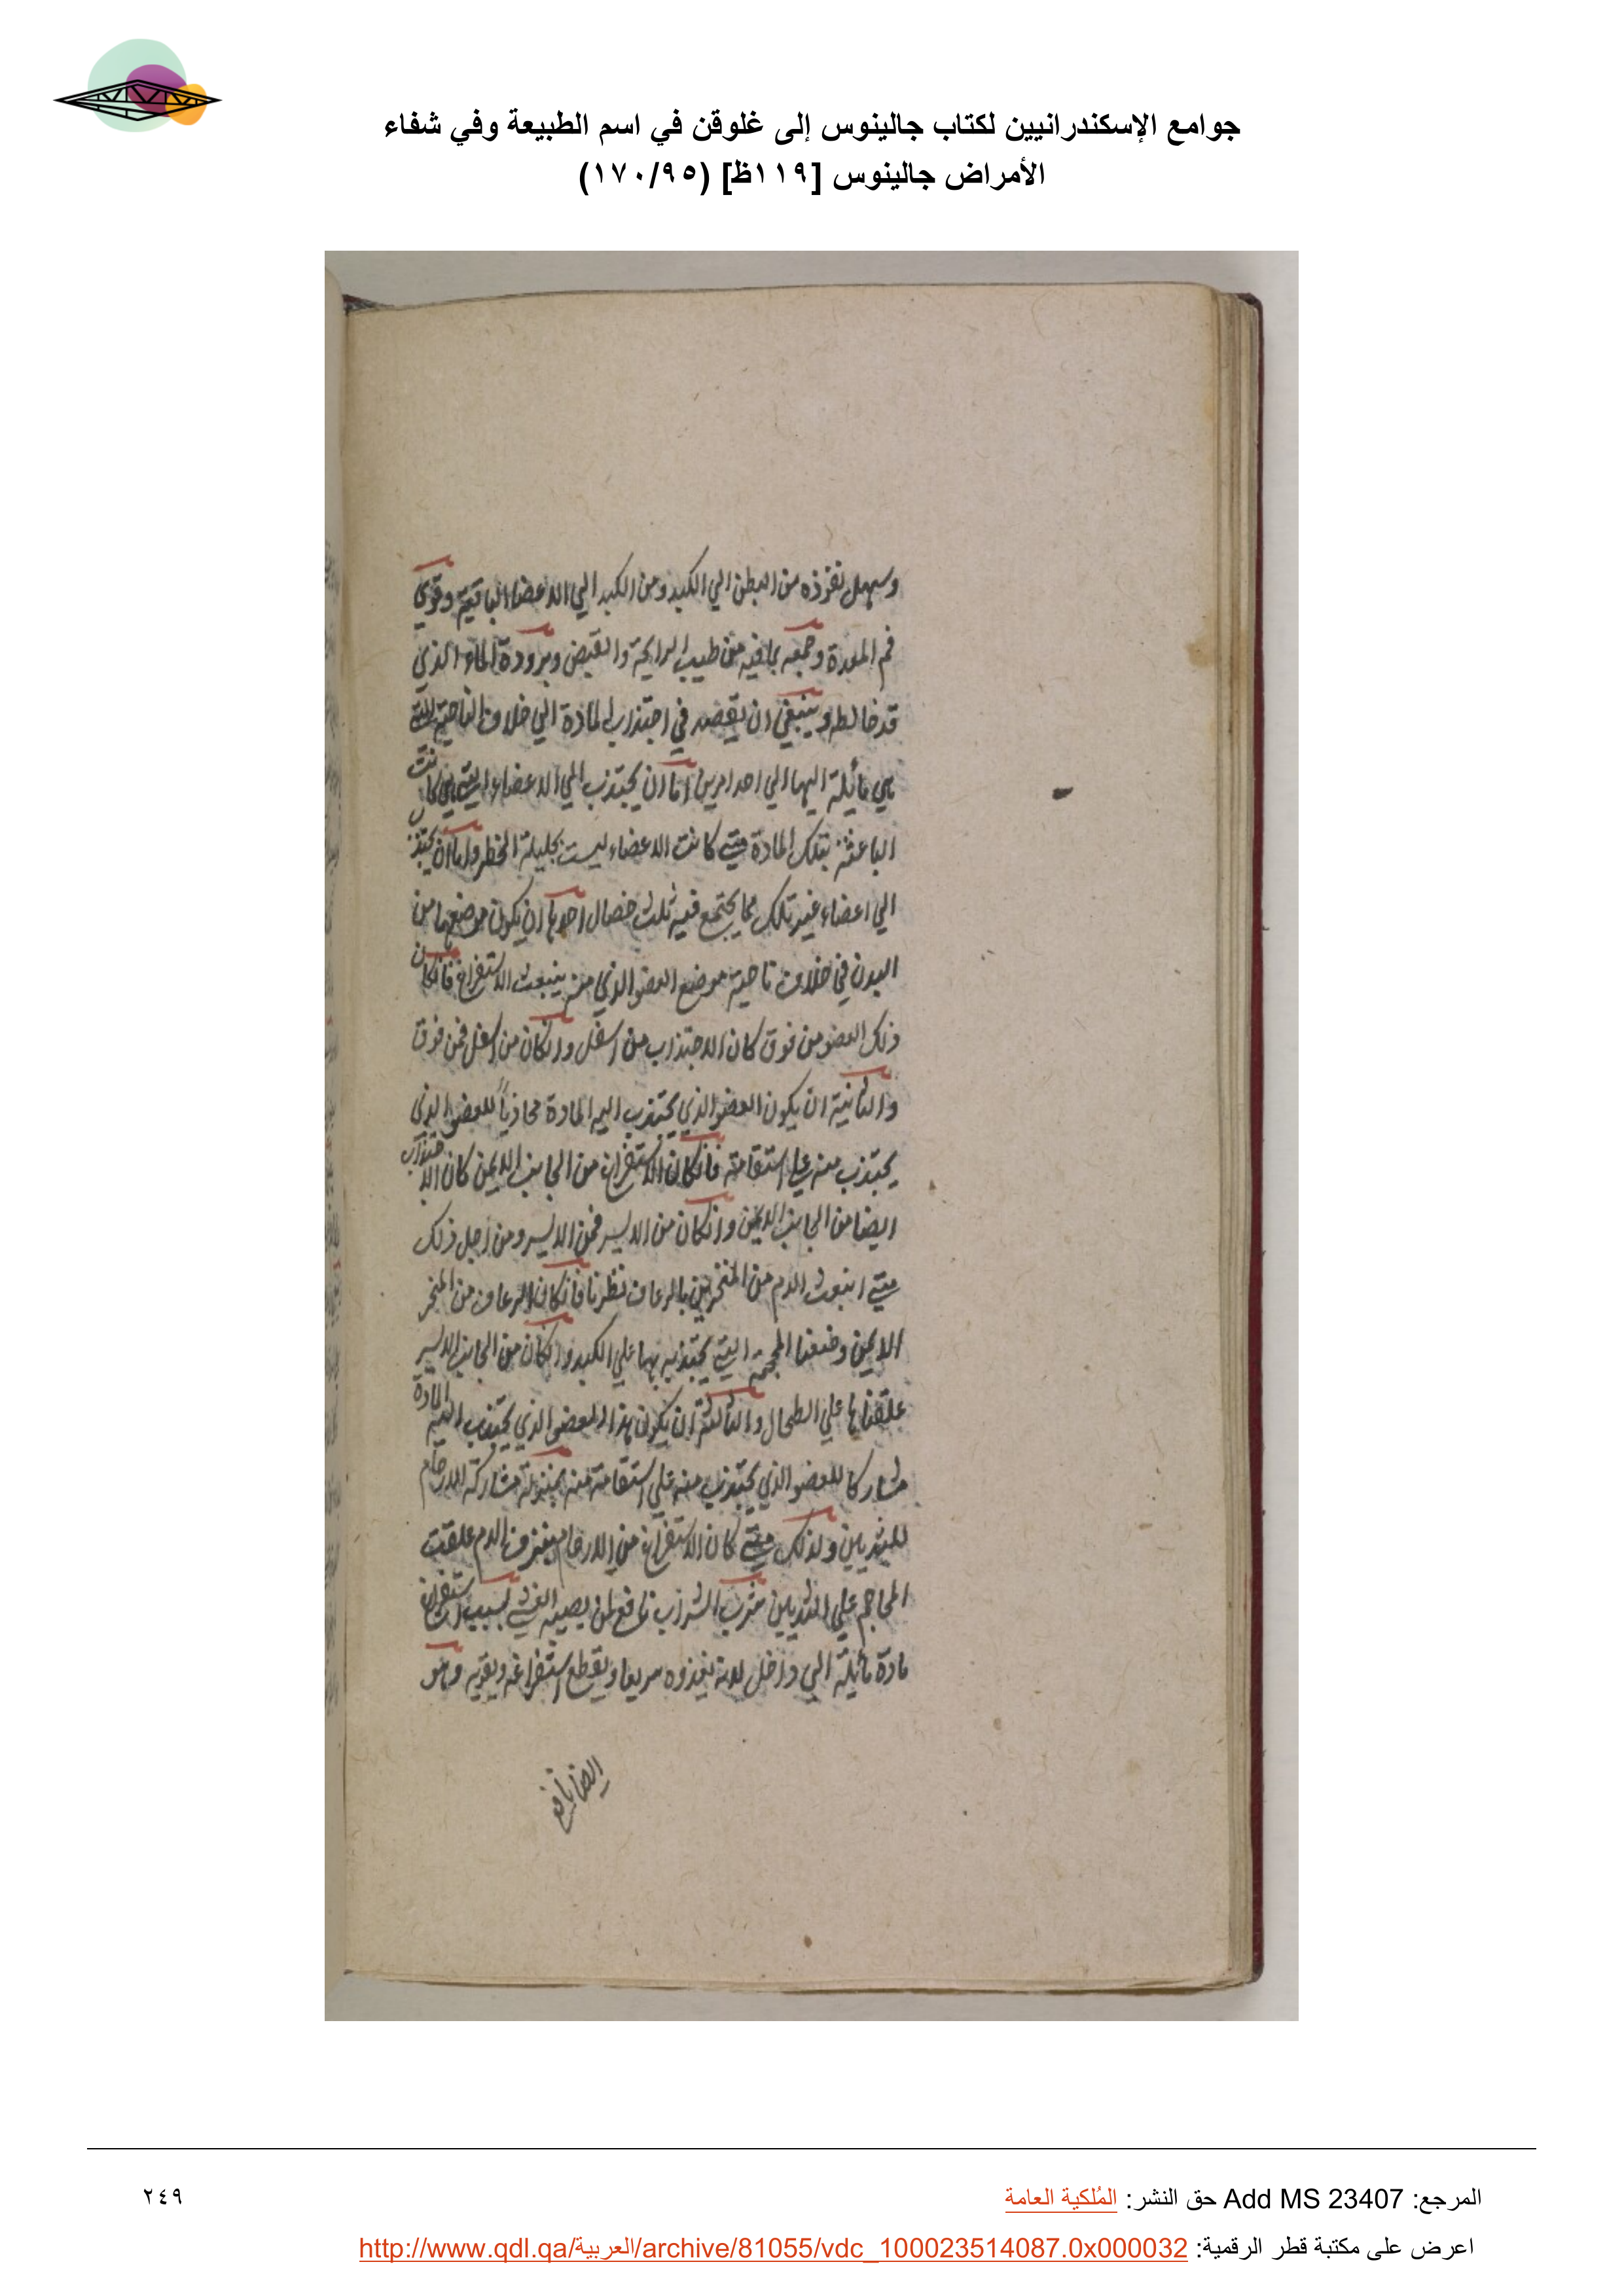 جوامع الإسكندرانيين لكتاب جالينوس إلى غلوقن في اسم الطبيعة وفي شفاء
الأمراض جالينوس [١١٩ظ] (١٧٠/٩٥)
وسهل نفوذه من البطن الي الكبد ومن الكبد الي الاعضا الباقية وقوي
فم المعدة وجمعه بما فيه من طيب الرايحة والقبض وبرودة الماء الذي
قد خالطه وينبغي ان يقصد في اجتذاب المادة الي خلاف الناحية التي
هي مائلة اليها الي احد امرين اما ان يجتذب الي الاعضاء التي كانت
الباعثة بتلك المادة متي كانت الاعضاء ليست بجليلة الخطر واما ان يجتذب
الي اعضاء غير تلك مما يجتمع فيه ثلث خصال احدها ان يكون موضعها من
البدن في خلاف ناحية موضع العضو الذي منه ينبعث الاستفراغ فانكان
ذلك العضو من فوق كان الاجتذاب من اسفل وانكان من اسفل فمن فوق
والثانية ان يكون العضو الذي يجتذب اليه المادة محاذياً للعضو الذي
يجتذب منه علي استقامته فانكان الاستفراغ من الجانب الايمن كان الاجتذاب
ايضا من الجانب الايمن وانكان من الايسر فمن الايسر ومن اجل ذلك
متي انبعث الدم من المنخرين بالرعاف نظرنا فانكان الرعاف من المنخر
الايمن وضعنا المحجمة التي يجتذب بها علي الكبد وانكان من الجانب الايسر
علقناها علي الطحال والثالثة ان يكون هذا العضو الذي يجتذب اليه المادة
مشاركا للعضو الذي يجتذب منه علي استقامة منه بمنزلة مشاركة الارحام
للثديين ولذلك متي كان الاستفراغ من الارحام بنزف الدم علقت
المحاجم علي الثديين شرب الشراب نافع لمن يصيبه الغشي بسبب استفراغ
مادة مائلة الي داخل لانه يغذوه سريعا ويقطع استفراغه ويقويه وهو
ايضا نافع
المرجع: Add MS 23407 حق النشر: المُلكية العامة
٢٤٩
اعرض على مكتبة قطر الرقمية: http://www.qdl.qa/العربية/archive/81055/vdc_100023514087.0x000032